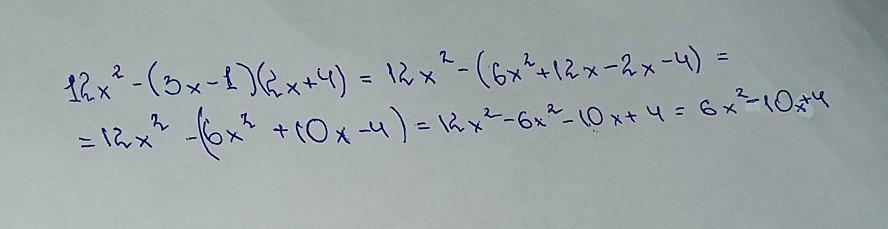 12x² - (3x-1)(2x+4) = 12x² - (6x²+12x-2x-4) =
= 12x² - (6x² + 10x - 4) = 12x² - 6x² - 10x + 4 = 6x² - 10x + 4